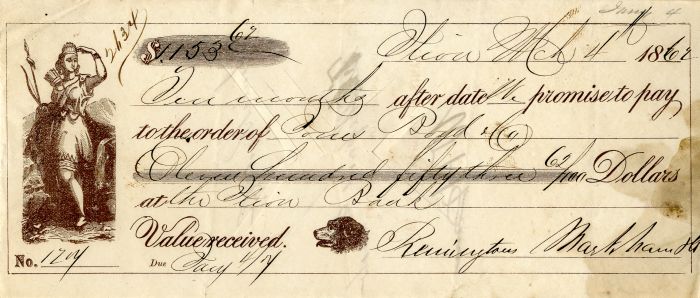 2634
$1,153 62
Ilion Mch 4 1862
Ten months after date We promise to pay
to the order of Boyd & Co
Eleven hundred fifty three 62/100 Dollars
at the Ilion Bank
Value received.
Remingtons Markham & Co
No. 1204
Due Jany 4/7